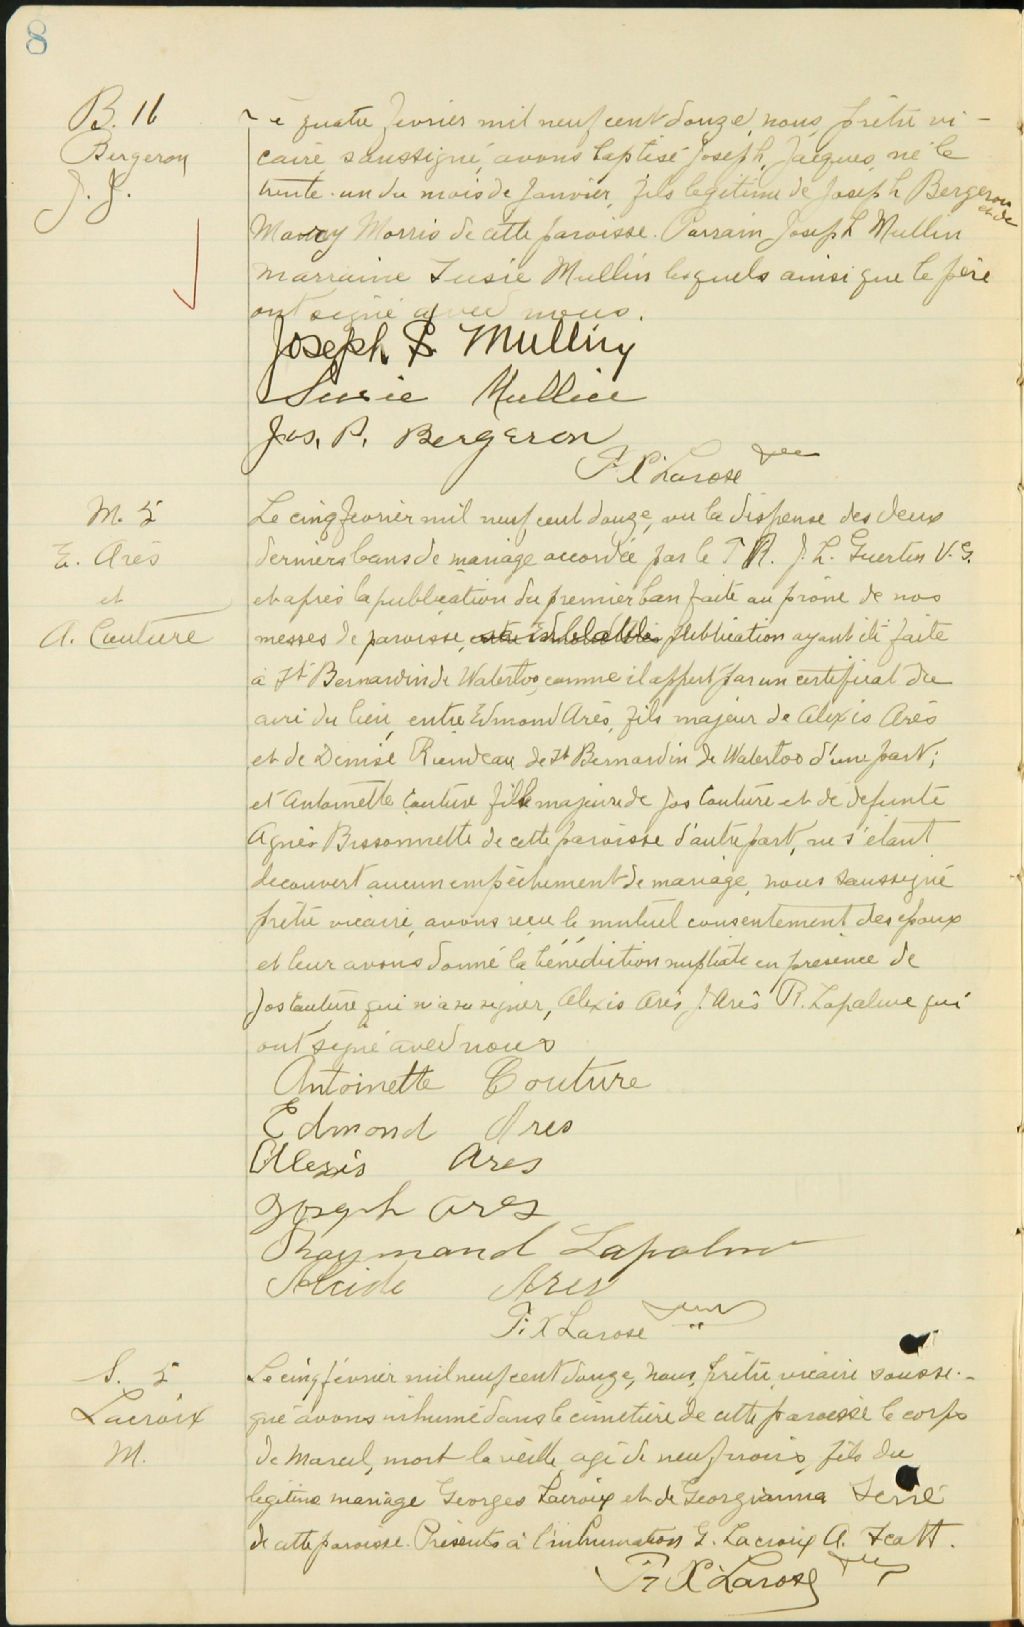 8
B. 16
Bergeron
J. J.
Le quatre février mil neuf cent douze, nous, prêtre vi-
caire soussigné, avons baptisé Joseph, Jacques, né le
trente-un du mois de Janvier, fils légitime de Joseph Bergeron
et de
Mary Morris de cette paroisse. Parrain Joseph Mullin
marraine Susie Mullin lesquels ainsi que le père
ont signé avec nous.
Joseph P. Mullin
Susie Mullin
Jos. P. Bergeron
F. X. Larose ptre
M. 5
E. Arès
et
A. Couture
Le cinq février mil neuf cent douze, vu la dispense des deux
derniers bans de mariage accordée par le T. R. J. L. Guertin V. G.
et après la publication du premier ban faite au prône de nos
messes de paroisse, publication ayant été faite
à St Bernardin de Waterloo, comme il appert par un certificat du
curé du lieu, entre Edmond Arès, fils majeur de Alexis Arès
et de Denise Riendeau de St Bernardin de Waterloo d'une part;
et Antoinette Couture fille majeure de Jos Couture et de défunte
Agnès Bissonnette de cette paroisse d'autre part, ne s'étant
découvert aucun empêchement de mariage, nous soussigné
prêtre vicaire, avons reçu le mutuel consentement des époux
et leur avons donné la bénédiction nuptiale en présence de
Jos Couture qui n'a su signer, Alexis Arès, J. Arès R. Lapalme qui
ont signé avec nous
Antoinette Couture
Edmond Ares
Alexis Ares
Joseph Ares
Raymond Lapalme
Alcide Ares
F. X Larose ptre
S. 5
Lacroix
M.
Le cinq février mil neuf cent douze, nous, prêtre vicaire soussi-
gné avons inhumé dans le cimetière de cette paroisse le corps
de Marcel, mort la veille, agé de neuf mois, fils du
légitime mariage Georges Lacroix et de Georgianna Serré
de cette paroisse. Présents à l'inhumation G. Lacroix A. Scott.
F. X. Larose ptre